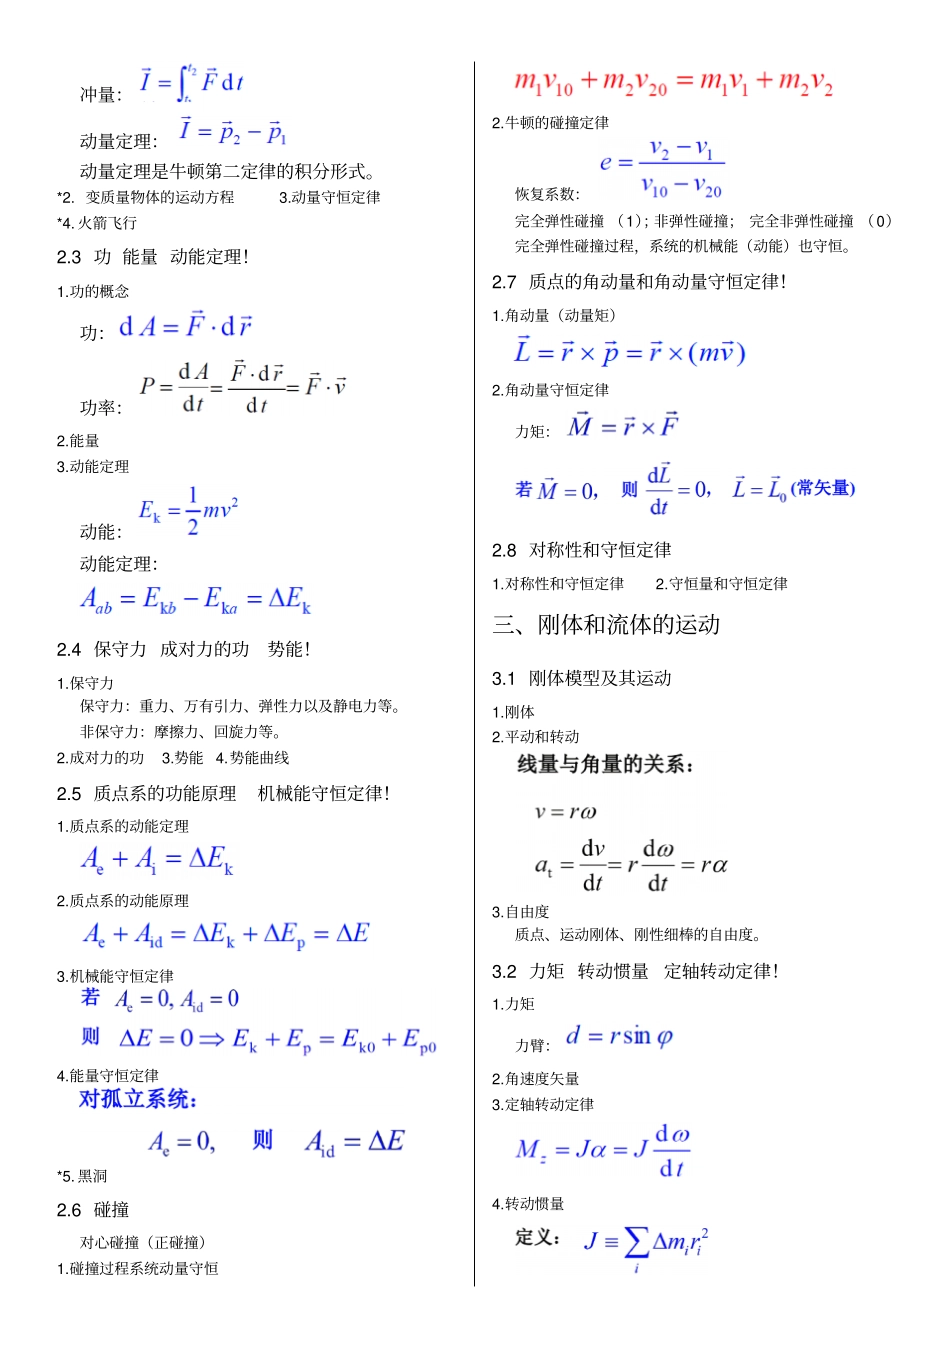 冲量： $\vec{I} = \int_{t_1}^{t_2} \vec{F} \mathrm{d}t$
动量定理： $\vec{I} = \vec{p}_2 - \vec{p}_1$
动量定理是牛顿第二定律的积分形式。
*2. 变质量物体的运动方程 3.动量守恒定律
*4. 火箭飞行
2.3 功 能量 动能定理！
1.功的概念
功： $\mathrm{d}A = \vec{F} \cdot \mathrm{d}\vec{r}$
功率： $P = \frac{\mathrm{d}A}{\mathrm{d}t} = \frac{\vec{F} \cdot \mathrm{d}\vec{r}}{\mathrm{d}t} = \vec{F} \cdot \vec{v}$
2.能量
3.动能定理
动能： $E_k = \frac{1}{2}mv^2$
动能定理：
$A_{ab} = E_{kb} - E_{ka} = \Delta E_k$
2.4 保守力 成对力的功 势能！
1.保守力
保守力：重力、万有引力、弹性力以及静电力等。
非保守力：摩擦力、回旋力等。
2.成对力的功 3.势能 4.势能曲线
2.5 质点系的功能原理 机械能守恒定律！
1.质点系的动能定理
$A_e + A_i = \Delta E_k$
2.质点系的动能原理
$A_e + A_{id} = \Delta E_k + \Delta E_p = \Delta E$
3.机械能守恒定律
若 $A_e = 0, A_{id} = 0$
则 $\Delta E = 0 \Rightarrow E_k + E_p = E_{k0} + E_{p0}$
4.能量守恒定律
对孤立系统：
$A_e = 0,$ 则 $A_{id} = \Delta E$
*5. 黑洞
2.6 碰撞
对心碰撞（正碰撞）
1.碰撞过程系统动量守恒
$m_1v_{10} + m_2v_{20} = m_1v_1 + m_2v_2$
2.牛顿的碰撞定律
恢复系数： $e = \frac{v_2 - v_1}{v_{10} - v_{20}}$
完全弹性碰撞 （1）；非弹性碰撞； 完全非弹性碰撞 （0）
完全弹性碰撞过程，系统的机械能（动能）也守恒。
2.7 质点的角动量和角动量守恒定律！
1.角动量（动量矩）
$\vec{L} = \vec{r} \times \vec{p} = \vec{r} \times (m\vec{v})$
2.角动量守恒定律
力矩： $\vec{M} = \vec{r} \times \vec{F}$
若 $\vec{M} = 0$， 则 $\frac{\mathrm{d}\vec{L}}{\mathrm{d}t} = 0$， $\vec{L} = \vec{L}_0$ (常矢量)
2.8 对称性和守恒定律
1.对称性和守恒定律 2.守恒量和守恒定律
三、刚体和流体的运动
3.1 刚体模型及其运动
1.刚体
2.平动和转动
线量与角量的关系：
$v = r\omega$
$a_t = \frac{\mathrm{d}v}{\mathrm{d}t} = r\frac{\mathrm{d}\omega}{\mathrm{d}t} = r\alpha$
3.自由度
质点、运动刚体、刚性细棒的自由度。
3.2 力矩 转动惯量 定轴转动定律！
1.力矩
力臂： $d = r\sin\varphi$
2.角速度矢量
3.定轴转动定律
$M_z = J\alpha = J\frac{\mathrm{d}\omega}{\mathrm{d}t}$
4.转动惯量
定义： $J \equiv \sum_i \Delta m_i r_i^2$